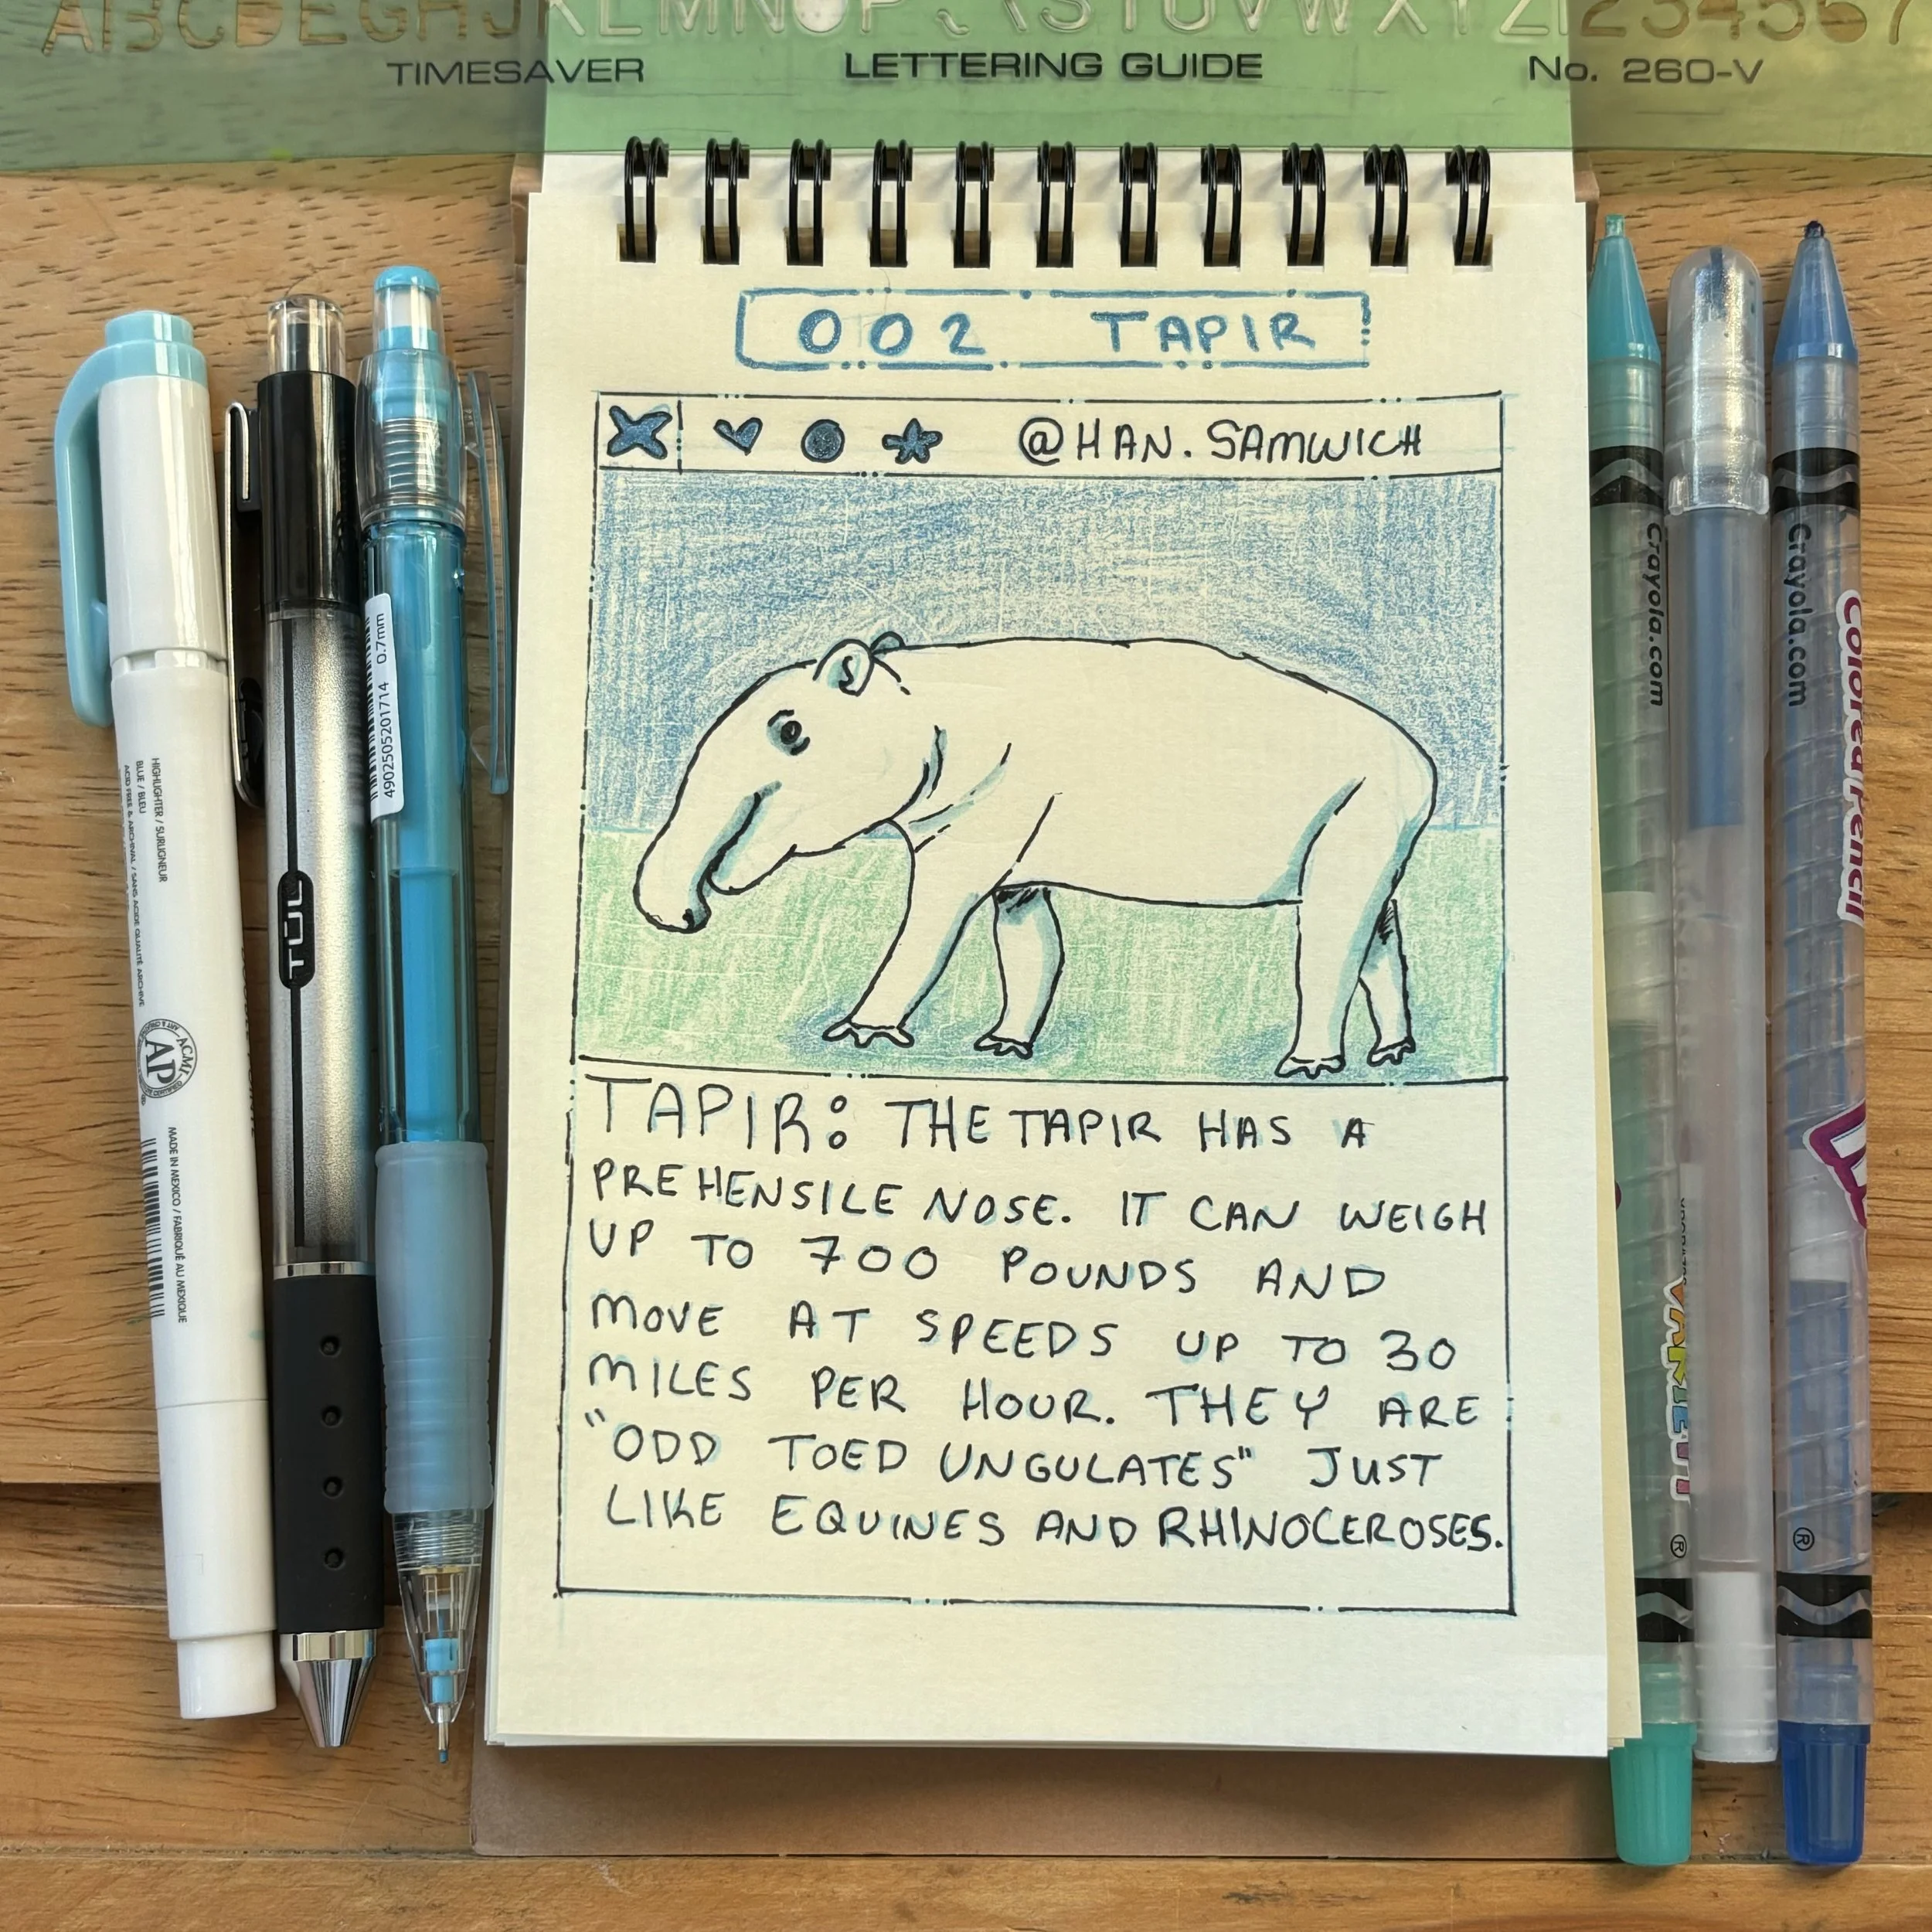 ABCDEFGHIJKLMNOPQRSTUVWXYZ1234567
TIMESAVER LETTERING GUIDE No. 260-V
002 TAPIR
@HAN.SAMWICH
TAPIR: THE TAPIR HAS A
PREHENSILE NOSE. IT CAN WEIGH
UP TO 700 POUNDS AND
MOVE AT SPEEDS UP TO 30
MILES PER HOUR. THEY ARE
"ODD TOED UNGULATES" JUST
LIKE EQUINES AND RHINOCEROSES.
HIGHLIGHTER / SURLIGNEUR
BLUE / BLEU
ACID FREE & ARCHIVAL / SANS ACIDE QUALITÉ ARCHIVE
ACMI
AP
MADE IN MEXICO / FABRIQUÉ AU MEXIQUE
TUL
4902505201714 0.7mm
Crayola.com
Crayola.com
Colored Pencil
®
®